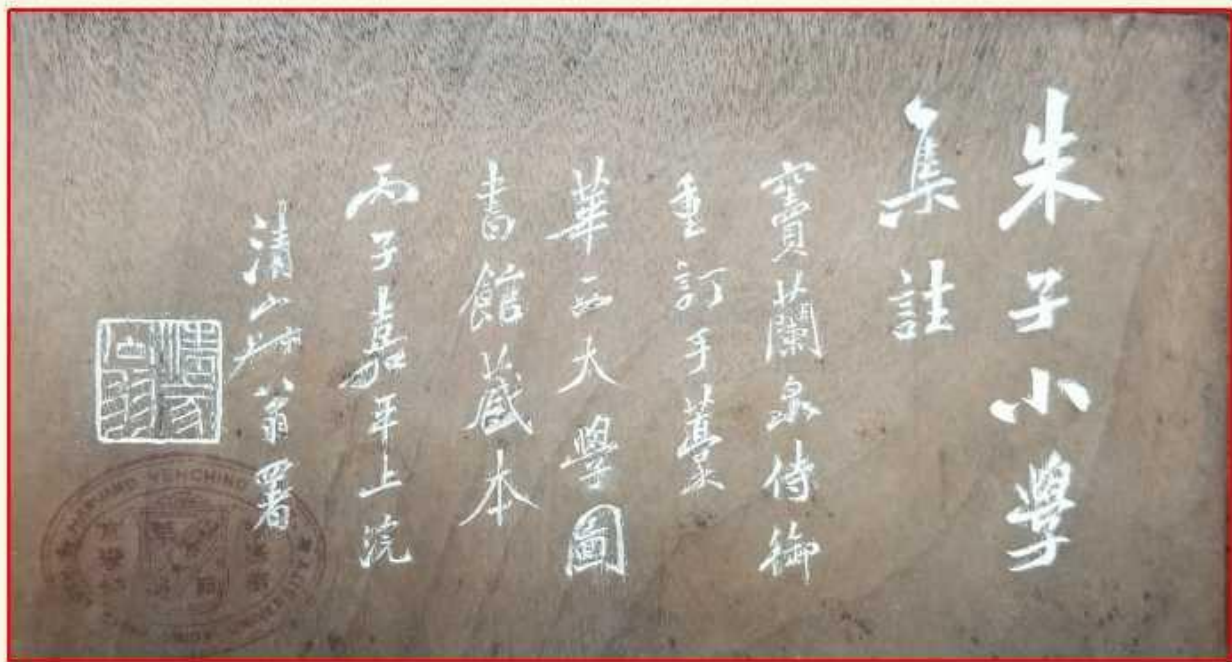 朱子小學
集註
竇蘭泉侍御
重訂手藁
華西大學圖
書館藏本
丙子嘉平上浣
清山翁署
HARVARD YENCHING